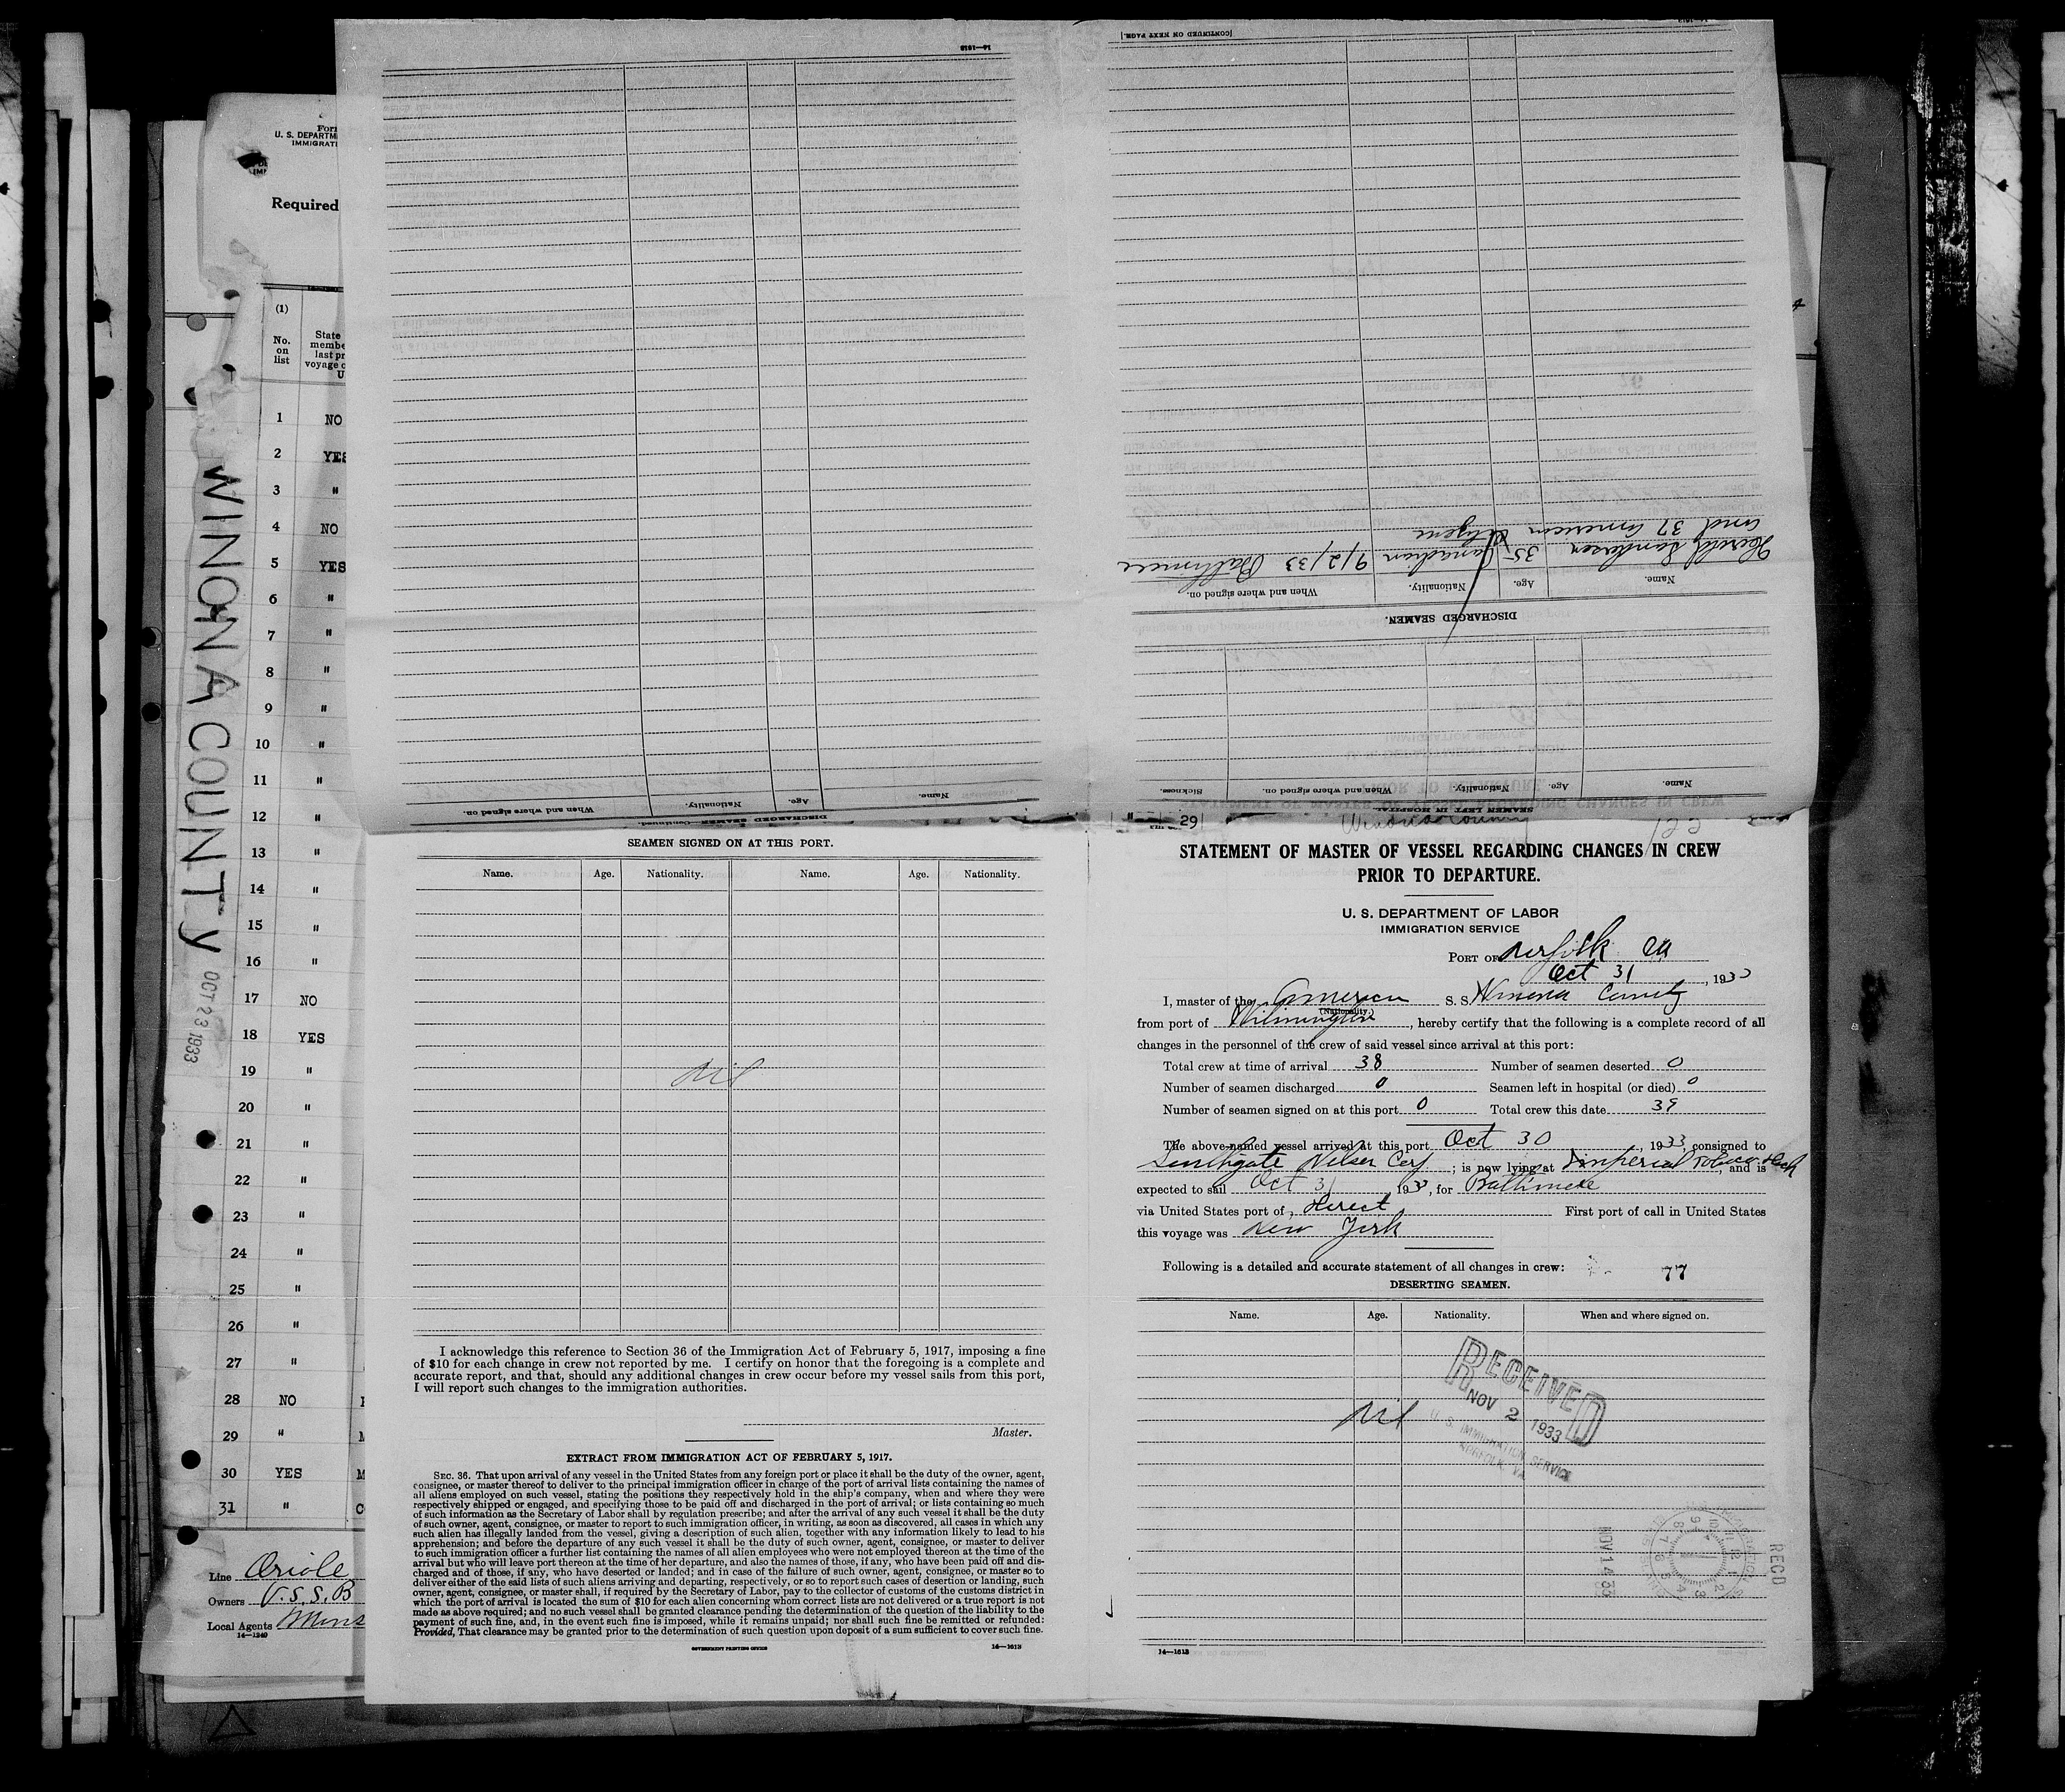 Form
U. S. DEPARTM
IMMIGRATI
Required
(1)
No.
on
list
State
membe
last pr
voyage o
U
1 NO
2 YES
3 "
4 NO
5 YES
6 "
7 "
8 "
9 "
10 "
11 "
12 "
13 "
14 "
15 "
16 "
17 NO
18 YES
19 "
20 "
21 "
22 "
23 "
24 "
25 "
26 "
27 "
28 NO
29 "
30 YES
31 "
WINONA COUNTY
OCT 23 1933
Line Oriole
Owners U.S.S.B
Local Agents
14—1240
14—1613
When and where signed on. Nationality. Age. Name.
DISCHARGED SEAMEN—Continued.
[CONTINUED ON NEXT PAGE.]
and 37 American Citizens
Harold Sanderson 35 Canadian 9/2/33 Baltimore
Name. Age. Nationality. When and where signed on.
DISCHARGED SEAMEN.
Name. Age. Nationality. When and where signed on. Sickness.
SEAMEN LEFT IN HOSPITAL
SEAMEN SIGNED ON AT THIS PORT.
Name. Age. Nationality. Name. Age. Nationality.
Nil
I acknowledge this reference to Section 36 of the Immigration Act of February 5, 1917, imposing a fine
of $10 for each change in crew not reported by me. I certify on honor that the foregoing is a complete and
accurate report, and that, should any additional changes in crew occur before my vessel sails from this port,
I will report such changes to the immigration authorities.
Master.
EXTRACT FROM IMMIGRATION ACT OF FEBRUARY 5, 1917.
SEC. 36. That upon arrival of any vessel in the United States from any foreign port or place it shall be the duty of the owner, agent,
consignee, or master thereof to deliver to the principal immigration officer in charge of the port of arrival lists containing the names of
all aliens employed on such vessel, stating the positions they respectively hold in the ship's company, when and where they were
respectively shipped or engaged, and specifying those to be paid off and discharged in the port of arrival; or lists containing so much
of such information as the Secretary of Labor shall by regulation prescribe; and after the arrival of any such vessel it shall be the duty
of such owner, agent, consignee, or master to report to such immigration officer, in writing, as soon as discovered, all cases in which any
such alien has illegally landed from the vessel, giving a description of such alien, together with any information likely to lead to his
apprehension; and before the departure of any such vessel it shall be the duty of such owner, agent, consignee, or master to deliver
to such immigration officer a further list containing the names of all alien employees who were not employed thereon at the time of the
arrival but who will leave port thereon at the time of her departure, and also the names of those, if any, who have been paid off and dis-
charged and of those, if any, who have deserted or landed; and in case of the failure of such owner, agent, consignee, or master so to
deliver either of the said lists of such aliens arriving and departing, respectively, or so to report such cases of desertion or landing, such
owner, agent, consignee, or master shall, if required by the Secretary of Labor, pay to the collector of customs of the customs district in
which the port of arrival is located the sum of $10 for each alien concerning whom correct lists are not delivered or a true report is not
made as above required; and no such vessel shall be granted clearance pending the determination of the question of the liability to the
payment of such fine, and, in the event such fine is imposed, while it remains unpaid; nor shall such fine be remitted or refunded:
Provided, That clearance may be granted prior to the determination of such question upon deposit of a sum sufficient to cover such fine.
GOVERNMENT PRINTING OFFICE 14—1613
29 Winona County
STATEMENT OF MASTER OF VESSEL REGARDING CHANGES IN CREW
PRIOR TO DEPARTURE.
U. S. DEPARTMENT OF LABOR
IMMIGRATION SERVICE
PORT OF Norfolk Va
Oct 31, 1933
I, master of the American S. S. Winona County
(Nationality.)
from port of Wilmington, hereby certify that the following is a complete record of all
changes in the personnel of the crew of said vessel since arrival at this port:
Total crew at time of arrival 38 Number of seamen deserted 0
Number of seamen discharged 0 Seamen left in hospital (or died) 0
Number of seamen signed on at this port 0 Total crew this date 39
The above-named vessel arrived at this port Oct 30, 1933, consigned to
Southgate Nelson Corp; is now lying at Imperial Tobacco Dock, and is
expected to sail Oct 31 1933, for Baltimore
via United States port of, Direct First port of call in United States
this voyage was New York
Following is a detailed and accurate statement of all changes in crew: 77
DESERTING SEAMEN.
Name. Age. Nationality. When and where signed on.
Nil
RECEIVED
NOV 2 1933
U. S. IMMIGRATION SERVICE
NORFOLK, VA.
RECD
NOV 14 33
14—1613